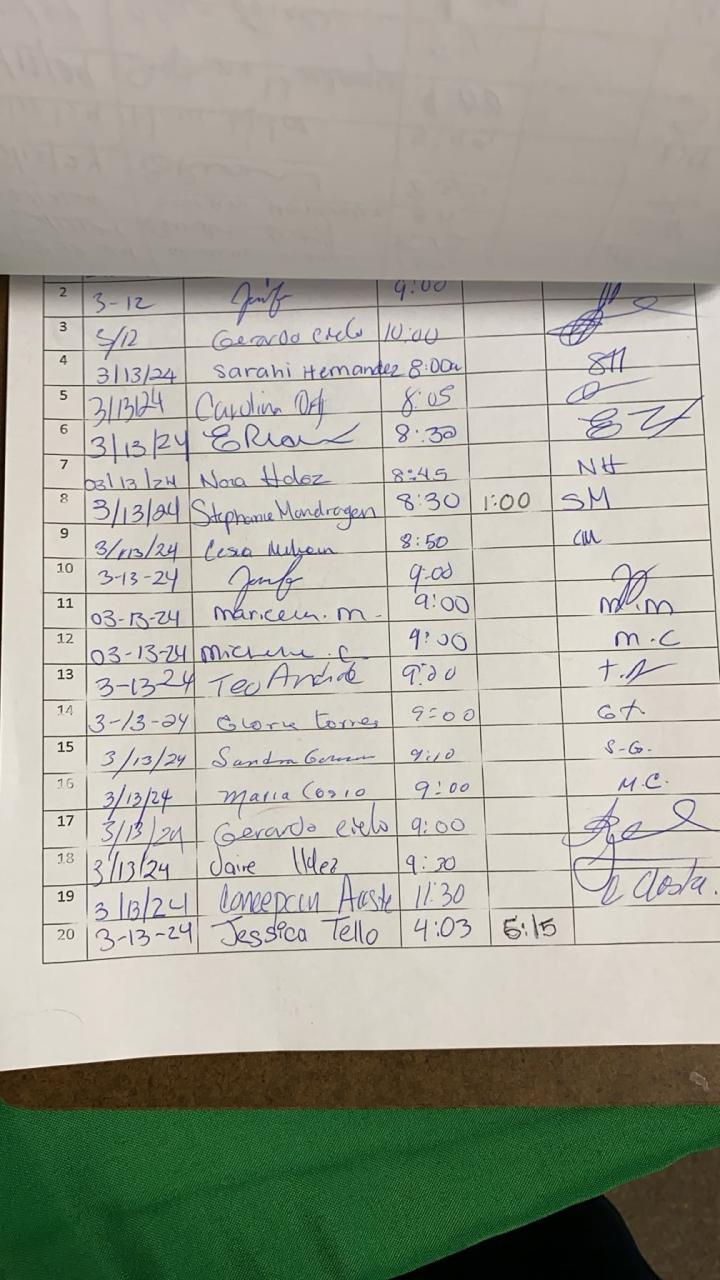 2 3-12 9:00
3 3/12 Gerardo cielo 10:00
4 3/13/24 Sarahi Hernandez 8:00a SH
5 3/13/24 Carolina 8:05
6 3/13/24 8:30
7 03/13/24 Nora Hdez 8:45 NH
8 3/13/24 Stephanie Mondragon 8:30 1:00 SM
9 3/13/24 8:50 CM
10 3-13-24 9:00
11 03-13-24 maricela. m. 9:00 m.m
12 03-13-24 michelle .C 9:00 m.c
13 3-13-24 Teo 9:20
14 3-13-24 Gloria torres 9:00 Gt
15 3/13/24 Sandra 9:10 S.G.
16 3/13/24 Maria Cosio 9:00 M.C.
17 3/13/24 Gerardo cielo 9:00
18 3/13/24 9:20
19 3/13/24 11:30
20 3-13-24 Jessica Tello 4:03 5:15